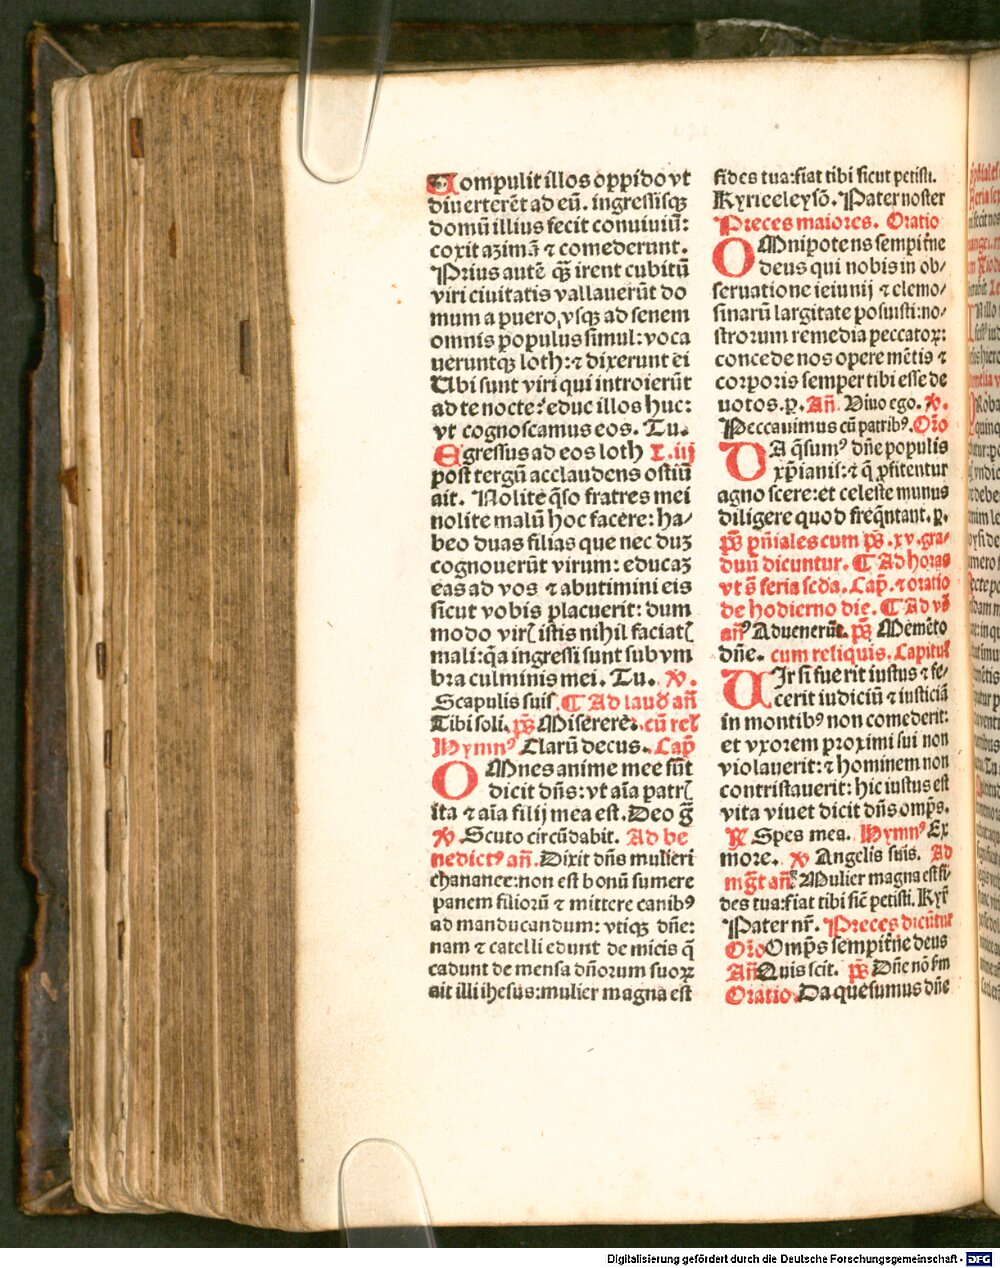 Compulit illos oppido vt
diuerterēt ad eū. ingressisqꝫ
domū illius fecit conuiuiū:
coxit azimā ⁊ comederunt.
Prius autē qꝫ̄ irent cubitū
viri ciuitatis vallauerūt do
mum a puero, vsqꝫ ad senem
omnis populus simul: voca
ueruntqꝫ loth: ⁊ dixerunt ei
Vbi sunt viri qui introierūt
ad te nocte? educ illos huc:
vt cognoscamus eos. Tu.
Egressus ad eos loth L. iij
post tergū acclaudens ostiū
ait. Nolite q̄so fratres mei
nolite malū hoc facere: ha/
beo duas filias que nec duꝫ
cognouerūt virum: educaꝫ
eas ad vos ⁊ abutimini eis
sicut vobis placuerit: dum
modo virꝭ istis nihil faciatꝭ
mali: q̄a ingressi sunt sub vm
bra culminis mei. Tu. ℣.
Scapulis suis. ¶ Ad laud añ
Tibi soli. ps̄ Miserere. cū relꝭ
Hymnꝰ Clarū decus. Cap̄
OMnes anime mee sūt
dicit dn̄s: vt aīa patrꝭ
ita ⁊ aīa filij mea est. Deo g̃
℣ Scuto circūdabit. Ad be
nedictꝰ añ. Dixit dn̄s mulieri
chananee: non est bonū sumere
panem filiorū ⁊ mittere canibꝰ
ad manducandum: vtiqꝫ dn̄e:
nam ⁊ catelli edunt de micis q̄
cadunt de mensa dn̄orum suoꝝ
ait illi ihesus: mulier magna est
fides tua: fiat tibi sicut petisti.
Kyrieleysō. Pater noster
Preces maiores. Oratio
OMnipotens sempit̄ne
deus qui nobis in ob/
seruatione ieiunij ⁊ elemo/
sinarū largitate posuisti: no/
strorum remedia peccatoꝝ:
concede nos opere mētis ⁊
corporis semper tibi esse de
uotos. p. Añ. Viuo ego. ℣.
Peccauimus cū patribꝰ. Oro
DA q̄sumꝰ dn̄e populis
xp̄ianis: ⁊ q̄ ꝓfitentur
agnoscere: et celeste munus
diligere quod freq̄ntant. p.
ps̄ pn̄iales cum ps̄. xv. gra/
duū dicuntur. ¶ Ad horas
vt s̄ feria scd̄a. Cap̄. ⁊ oratio
de hodierno die. ¶ Ad vs̄
añꝰ Aduenerūt. ps̄ Memēto
dn̄e. cum reliquis. Capituł
VIr si fuerit iustus ⁊ fe/
cerit iudiciū ⁊ iusticiā
in montibꝰ non comederit:
et vxorem proximi sui non
violauerit: ⁊ hominem non
contristauerit: hic iustus est
vita viuet dicit dn̄s omp̄s.
℟ Spes mea. Hymnꝰ Ex
more. ℣ Angelis suis. Ad
mg̃t añ Mulier magna est fi/
des tua: fiat tibi sic̄ petisti. Kyr̄
Pater nr̄. Preces dicūtur
Oro Omp̄s sempit̄ne deus
Añ Quis scit. ps̄ Dn̄e nō s̄m
Oratio. Da quesumus dn̄e
Digitalisierung gefördert durch die Deutsche Forschungsgemeinschaft - DFG